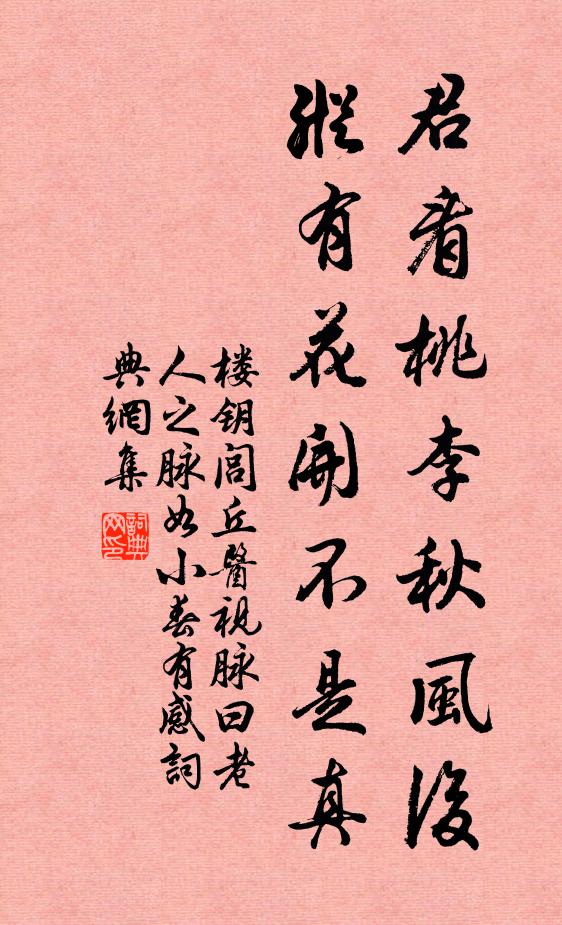 君看桃李秋風後
縱有花開不是真
楼钥閭丘醫視脉曰老
人之脉如小春有感詞
典網集
詞典
网印